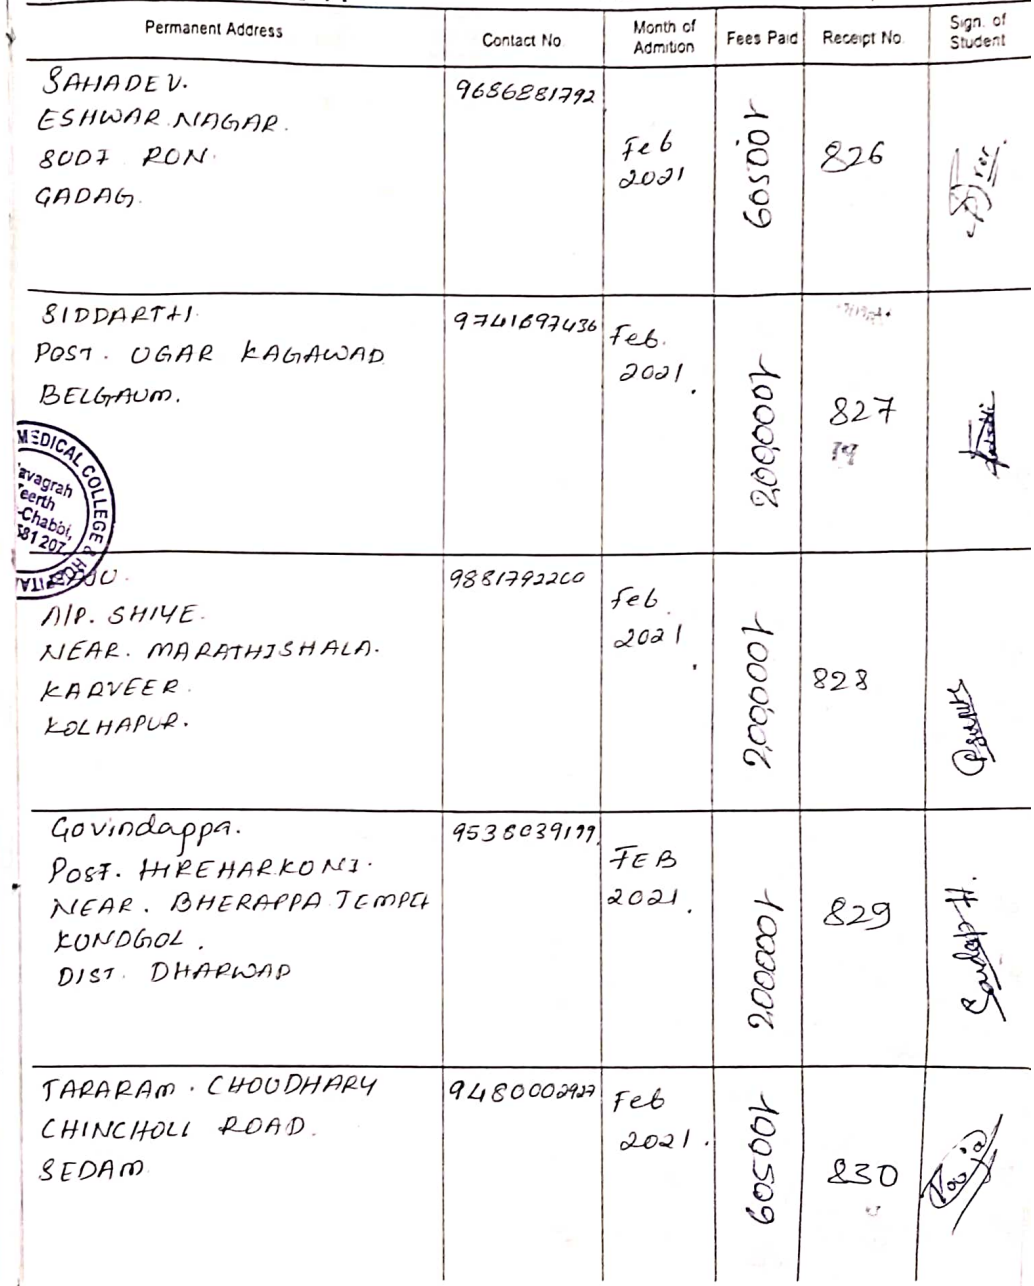 Permanent Address
Contact No
Month of
Admition
Fees Paid
Receipt No.
Sign. of
Student
SAHADEV.
ESHWAR NAGAR.
SUDI RON.
GADAG.
9686881792
Feb
2021
60500/-
826
SIDDARTH
POST. UGAR KAGAWAD
BELGAUM.
9741697436
Feb.
2021.
200000/-
827
MEDICAL COLLEGE &
Teerth
Chabbi,
581 207
A/P. SHIYE.
NEAR. MARATHISHALA.
KARVEER.
KOLHAPUR.
9881792200
Feb
2021.
200000/-
828
Govindappa.
POST. HIREHARKONI.
NEAR. BHERAPPA TEMPLE
KUNDGOL.
DIST. DHARWAD
9538039199
FEB
2021.
200000/-
829
Sandeep H.
TARARAM. CHOUDHARY
CHINCHOLI ROAD.
SEDAM
9480002927
Feb
2021.
60500/-
830